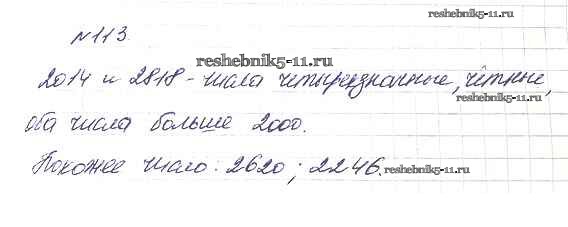 reshebnik5-11.ru
№113.
reshebnik5-11.ru
2014 и 2818 - числа четырехзначные, чётные,
reshebnik5-11.ru
оба числа больше 2000.
Похожее число: 2620; 2246.
reshebnik5-11.ru